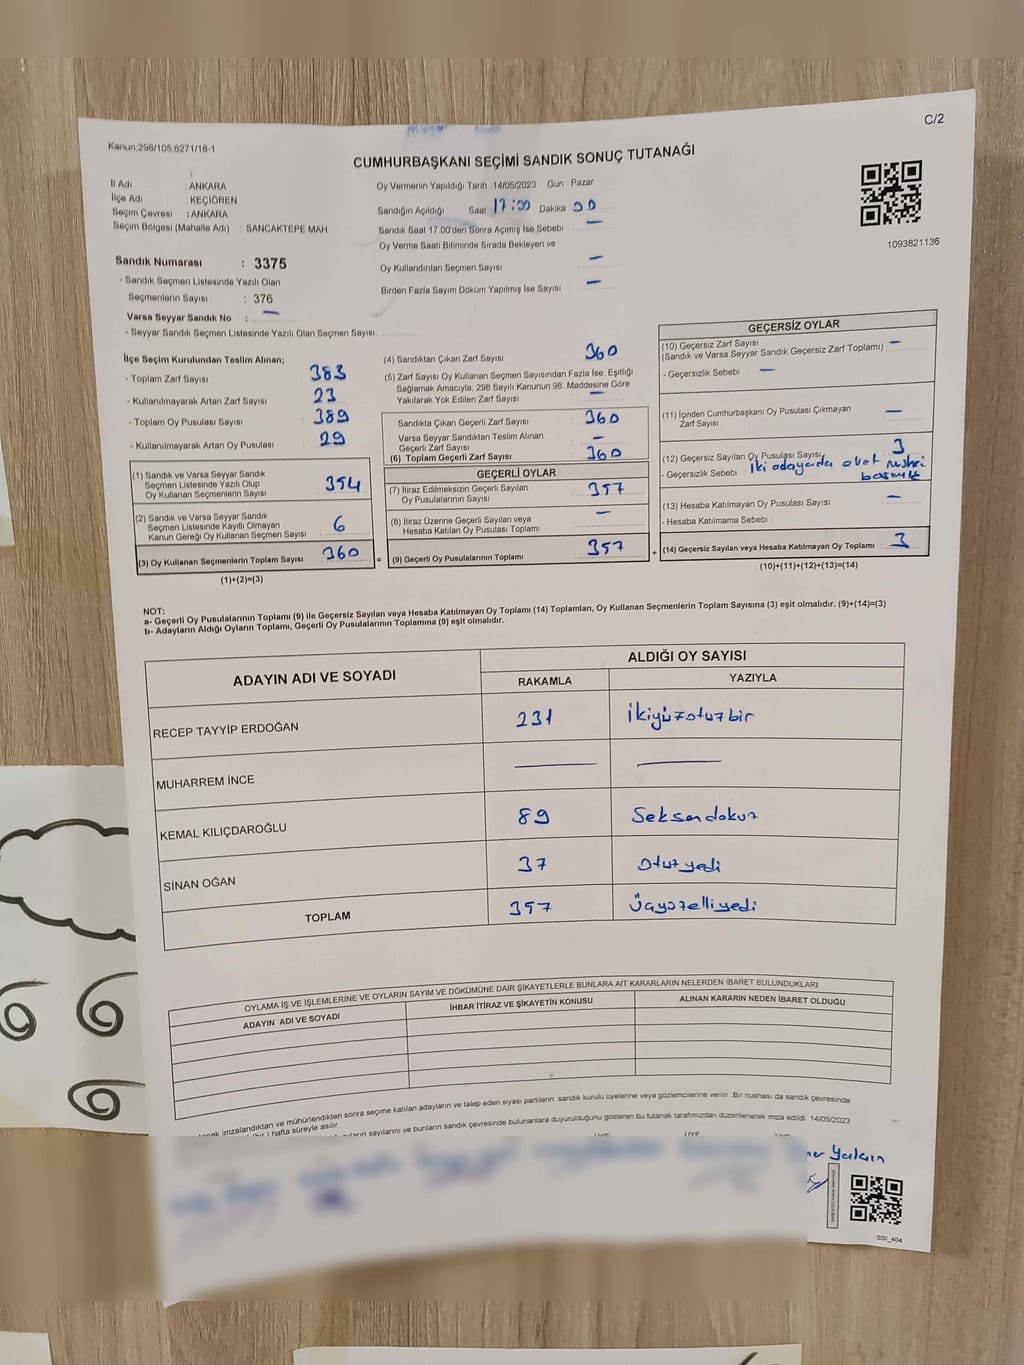 C/2
Kanun;298/105,6271/18-1
CUMHURBAŞKANI SEÇİMİ SANDIK SONUÇ TUTANAĞI
İl Adı : ANKARA
İlçe Adı : KEÇİÖREN
Seçim Çevresi : ANKARA
Seçim Bölgesi (Mahalle Adı) : SANCAKTEPE MAH
Oy Vermenin Yapıldığı Tarih 14/05/2023 Gün : Pazar
Sandığın Açıldığı Saat 17:00 Dakika 00
Sandık Saat 17.00'den Sonra Açılmış İse Sebebi —
Oy Verme Saati Bitiminde Sırada Bekleyen ve
Oy Kullandırılan Seçmen Sayısı —
Birden Fazla Sayım Döküm Yapılmış İse Sayısı —
1093821136
Sandık Numarası : 3375
- Sandık Seçmen Listesinde Yazılı Olan
Seçmenlerin Sayısı : 376
Varsa Seyyar Sandık No : —
- Seyyar Sandık Seçmen Listesinde Yazılı Olan Seçmen Sayısı
İlçe Seçim Kurulundan Teslim Alınan;
- Toplam Zarf Sayısı 383
- Kullanılmayarak Artan Zarf Sayısı 23
- Toplam Oy Pusulası Sayısı 389
- Kullanılmayarak Artan Oy Pusulası 29
(1) Sandık ve Varsa Seyyar Sandık
Seçmen Listesinde Yazılı Olup
Oy Kullanan Seçmenlerin Sayısı 354
(2) Sandık ve Varsa Seyyar Sandık
Seçmen Listesinde Kayıtlı Olmayan
Kanun Gereği Oy Kullanan Seçmen Sayısı 6
(3) Oy Kullanan Seçmenlerin Toplam Sayısı 360
(1)+(2)=(3)
(4) Sandıktan Çıkan Zarf Sayısı 360
(5) Zarf Sayısı Oy Kullanan Seçmen Sayısından Fazla İse, Eşitliği
Sağlamak Amacıyla, 298 Sayılı Kanunun 98. Maddesine Göre
Yakılarak Yok Edilen Zarf Sayısı —
Sandıkta Çıkan Geçerli Zarf Sayısı 360
Varsa Seyyar Sandıktan Teslim Alınan
Geçerli Zarf Sayısı —
(6) Toplam Geçerli Zarf Sayısı 360
GEÇERLİ OYLAR
(7) İtiraz Edilmeksizin Geçerli Sayılan
Oy Pusulalarının Sayısı 357
(8) İtiraz Üzerine Geçerli Sayılan veya
Hesaba Katılan Oy Pusulası Toplamı —
= (9) Geçerli Oy Pusulalarının Toplamı 357
GEÇERSİZ OYLAR
(10) Geçersiz Zarf Sayısı
(Sandık ve Varsa Seyyar Sandık Geçersiz Zarf Toplamı) : —
- Geçersizlik Sebebi : —
(11) İçinden Cumhurbaşkanı Oy Pusulası Çıkmayan
Zarf Sayısı —
(12) Geçersiz Sayılan Oy Pusulası Sayısı 3
- Geçersizlik Sebebi : İki adayada evet mührü
basmak
(13) Hesaba Katılmayan Oy Pusulası Sayısı —
- Hesaba Katılmama Sebebi :
+ (14) Geçersiz Sayılan veya Hesaba Katılmayan Oy Toplamı : 3
(10)+(11)+(12)+(13)=(14)
NOT:
a- Geçerli Oy Pusulalarının Toplamı (9) ile Geçersiz Sayılan veya Hesaba Katılmayan Oy Toplamı (14) Toplamları, Oy Kullanan Seçmenlerin Toplam Sayısına (3) eşit olmalıdır. (9)+(14)=(3)
b- Adayların Aldığı Oyların Toplamı, Geçerli Oy Pusulalarının Toplamına (9) eşit olmalıdır.
ADAYIN ADI VE SOYADI
ALDIĞI OY SAYISI
RAKAMLA YAZIYLA
RECEP TAYYİP ERDOĞAN 231 İkiyüzotuzbir
MUHARREM İNCE — —
KEMAL KILIÇDAROĞLU 89 Seksendokuz
SİNAN OĞAN 37 Otuzyedi
TOPLAM 357 Üçyüzelliyedi
OYLAMA İŞ VE İŞLEMLERİNE VE OYLARIN SAYIM VE DÖKÜMÜNE DAİR ŞİKAYETLERLE BUNLARA AİT KARARLARIN NELERDEN İBARET BULUNDUKLARI
ADAYIN ADI VE SOYADI İHBAR İTİRAZ VE ŞİKAYETİN KONUSU ALINAN KARARIN NEDEN İBARET OLDUĞU
imzalandıktan ve mühürlendikten sonra seçime katılan adayların ve talep eden siyasi partilerin sandık kurulu üyelerine veya gözlemcilerine verilir. Bir nüshası da sandık çevresinde
hafta süreyle asılır.
sayılarını ve bunların sandık çevresinde bulunanlara duyurulduğunu gösteren bu tutanak tarafımızdan düzenlenerek imza edildi. 14/05/2023
ÜYE ÜYE
SSI_404